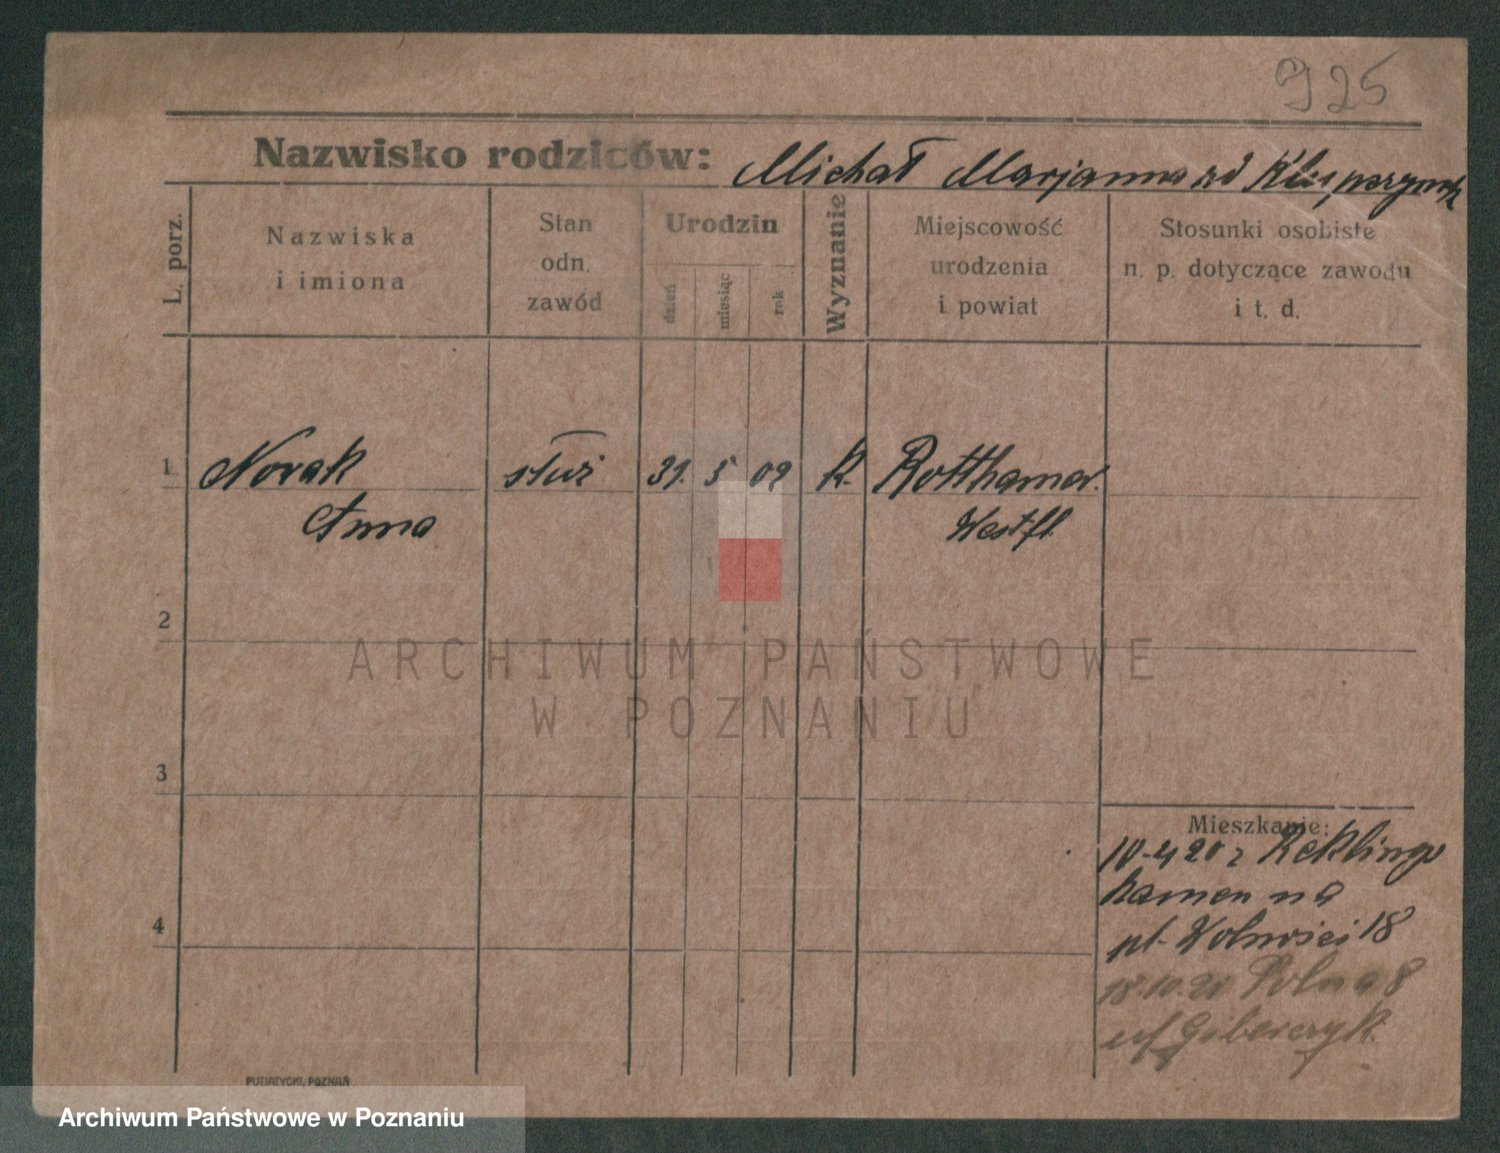 925
Nazwisko rodziców: Michał Marjanna zd
L. porz.
Nazwiska
i imiona
Stan
odn.
zawód
Urodzin
dzień
miesiąc
rok
Wyznanie
Miejscowość
urodzenia
i powiat
Stosunki osobiste
n. p. dotyczące zawodu
i t. d.
1 Novak służ 31. 5 09 k. Rotthamar.
Anna Westfl
2
ARCHIWUM PAŃSTWOWE
W POZNANIU
3
Mieszkanie:
10-4 20 z Reklingo
hamen na
4
pl. Wolności 18
18.10.20 Polna 8
PUTIATYCKI, POZNAŃ
Archiwum Państwowe w Poznaniu